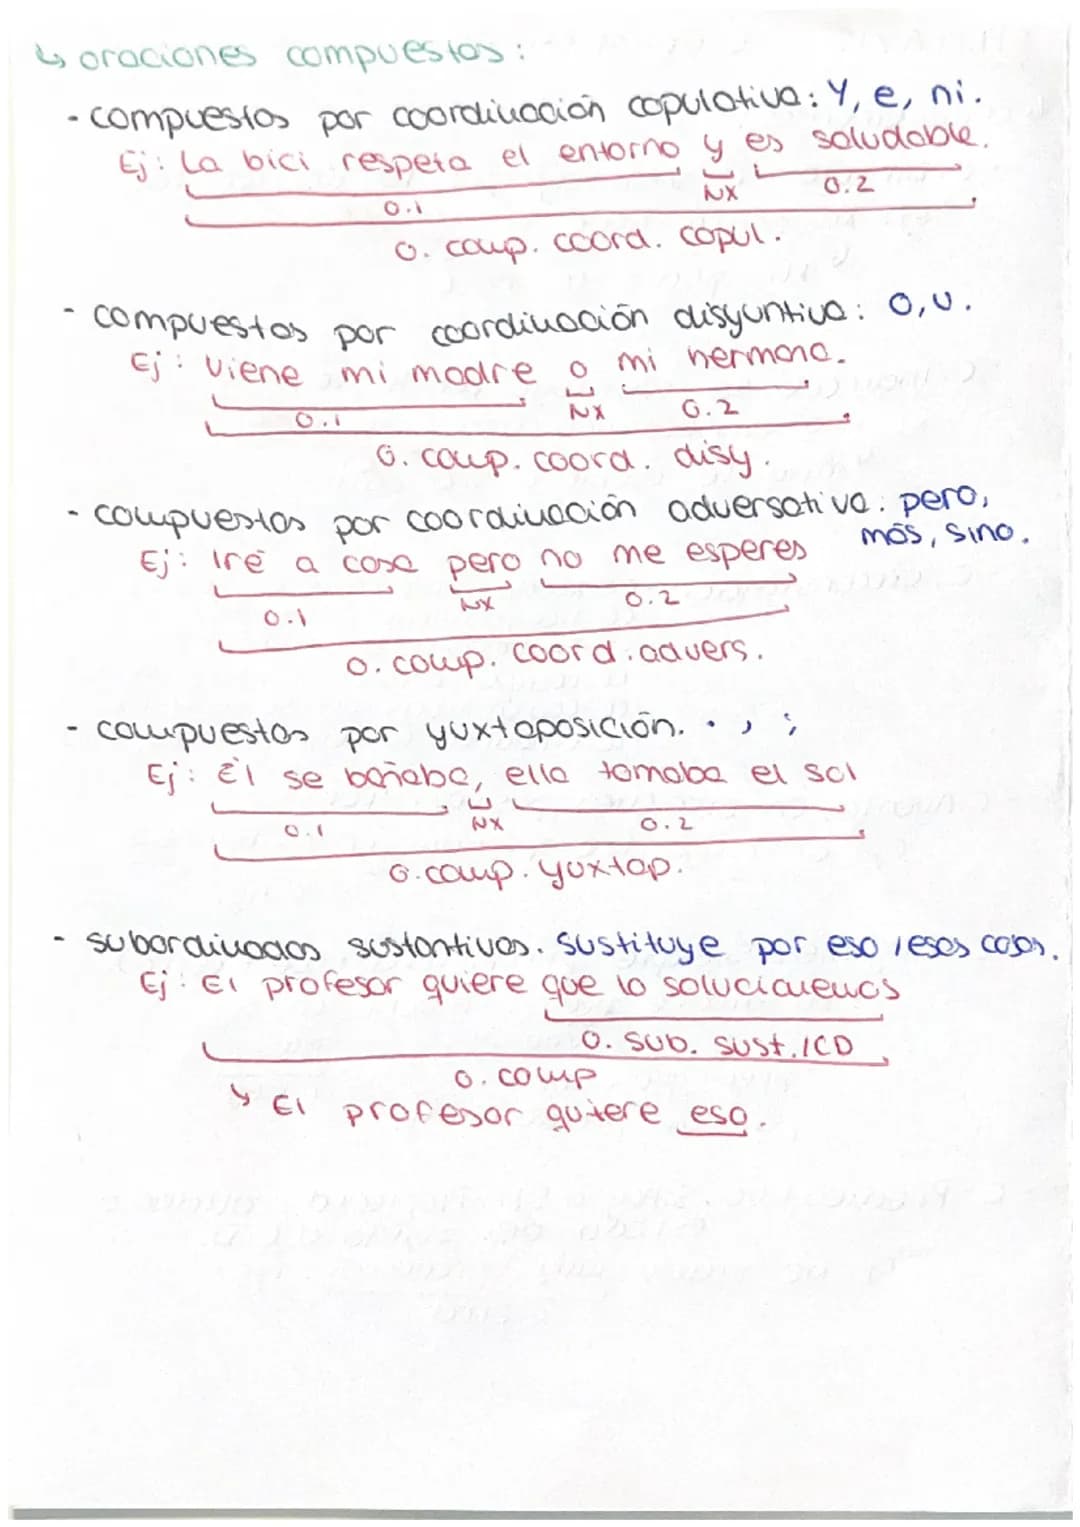 ↳ oraciones compuestas:
- compuestas por coordinación copulativa: Y, e, ni.
Ej: La bici respeta el entorno y es saludable.
NX 0.2
0.1
O. comp. coord. copul.
- compuestas por coordinación disyuntiva: O, U.
Ej: Viene mi madre o mi hermana.
0.1 NX 0.2
O. comp. coord. disy.
- compuestas por coordinación adversativa: pero,
más, sino.
Ej: Iré a casa pero no me esperes
0.1 NX 0.2
O. comp. coord. advers.
- compuestas por yuxtaposición. . , ;
Ej: Él se bañaba, ella tomaba el sol
0.1 NX 0.2
O. comp. yuxtap.
- subordinadas sustantivas. Sustituye por eso/esas cosas.
Ej: El profesor quiere que lo solucionemos
O. sub. sust./CD
O. comp
↳ El profesor quiere eso.